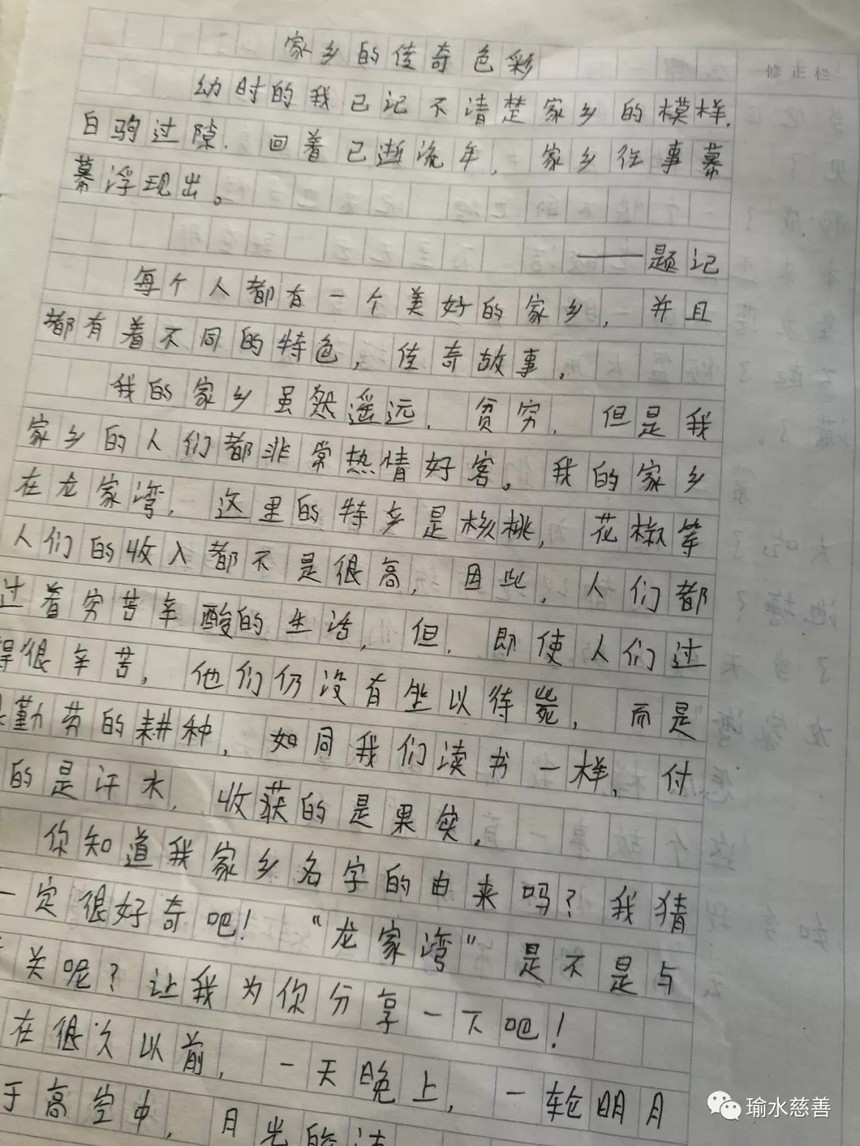 家乡的传奇色彩
修正栏
幼时的我已记不清楚家乡的模样.
白驹过隙.回着已逝流年,家乡往事幕
幕浮现出。
——题记
每个人都有一个美好的家乡,并且
都有着不同的特色,传奇故事.
我的家乡虽然遥远.贫穷.但是我
家乡的人们都非常热情好客。我的家乡
在龙家湾.这里的特乡是核桃,花椒等
人们的收入都不是很高,因此,人们都
过着穷苦辛酸的生活,但.即使人们过
得很辛苦,他们仍没有坐以待毙,而是
勤劳的耕种,如同我们读书一样,付
的是汗水,收获的是果实.
你知道我家乡名字的由来吗?我猜
一定很好奇吧!“龙家湾”是不是与
关呢?让我为你分享一下吧!
在很久以前,一天晚上,一轮明月
于高空中,月光的洁
瑜水慈善